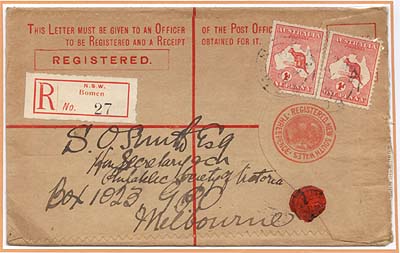 THIS LETTER MUST BE GIVEN TO AN OFFICER OF THE POST OFFICE
TO BE REGISTERED AND A RECEIPT OBTAINED FOR IT.
REGISTERED.
AUSTRALIA
ONE PENNY
AUSTRALIA
ONE PENNY
N.S.W.
Bomen
R No. 27
REGISTERED NEW SOUTH WALES
S. O. Smith Esq
Hon Secretary
Philatelic Society of Victoria
Box 1023 GPO
Melbourne